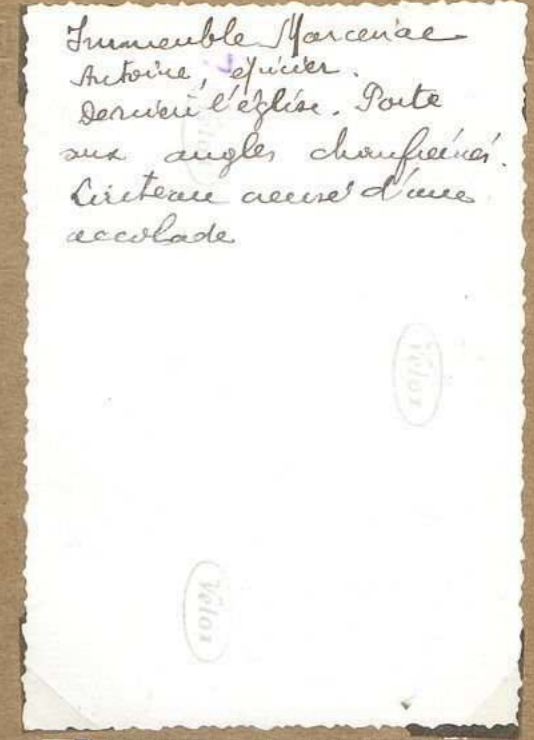 Immeuble Marcenac
Antoine, épicier.
Derrière l'église. Porte
aux angles chanfreinés.
Linteau creusé d'une
accolade
Velox
Velox
Velox